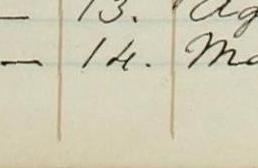 — 13. Ag
— 14. Ma